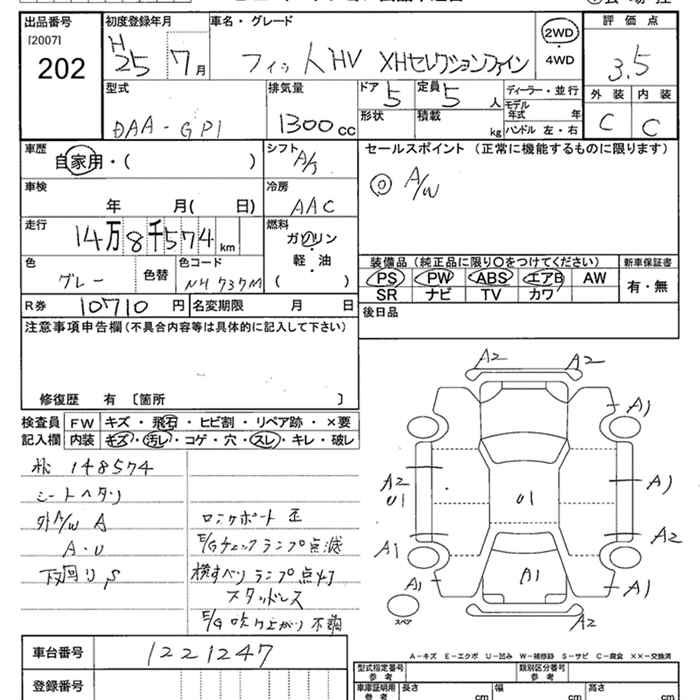 出品番号 初度登録年月 車名・グレード 2WD・4WD 評価点
[2007] H25 7月 フィットHV XHセレクションファイン 3.5
202
型式 排気量 ドア 定員 ディーラー・並行 外装 内装
DAA-GP1 1300cc 5 5人 モデル年式 年 C C
形状 積載 kg ハンドル 左・右
車歴 シフト セールスポイント (正常に機能するものに限ります)
自家用・( ) A/ ◎ A/W
車検 冷房
年 月( 日) AAC
走行 燃料
14万8千574km ガソリン・軽・油( )
色 色替 色コード 装備品 (純正品に限り○をつけてください) 新車保証書
グレー NH737M PS PW ABS エアB AW 有・無
SR ナビ TV カワ
R券 10710円 名変期限 月 日 後日品
注意事項申告欄(不具合内容等は具体的に記入して下さい)
修復歴 有 〔箇所 〕
検査員 FW キズ・飛石・ヒビ割・リペア跡・×要
記入欄 内装 キズ・汚レ・コゲ・穴・スレ・キレ・破レ
148574
シートヘタリ
外A/W A ロングボート 正
A・U E/Gチェックランプ点滅
下回りS 横すべりランプ点灯
スタッドレス
E/G吹け上がり不調
A2 A2
A1
A2 U1 U1 A1
A1 A2
A1 A1 A1
スペア A2
A-キズ E-エクボ U-凹み W-補修跡 S-サビ C-腐食 ××-交換済
車台番号 1221247
登録番号
型式指定番号 参考 類別区分番号 参考
車庫証明用 参考 長さ cm 幅 cm 高さ cm